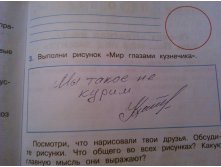 3. Выполни рисунок «Мир глазами кузнечика».
Мы такое не
курим
Посмотри, что нарисовали твои друзья. Обсуди-
те рисунки. Что общего во всех рисунках? Какую
главную мысль они выражают?